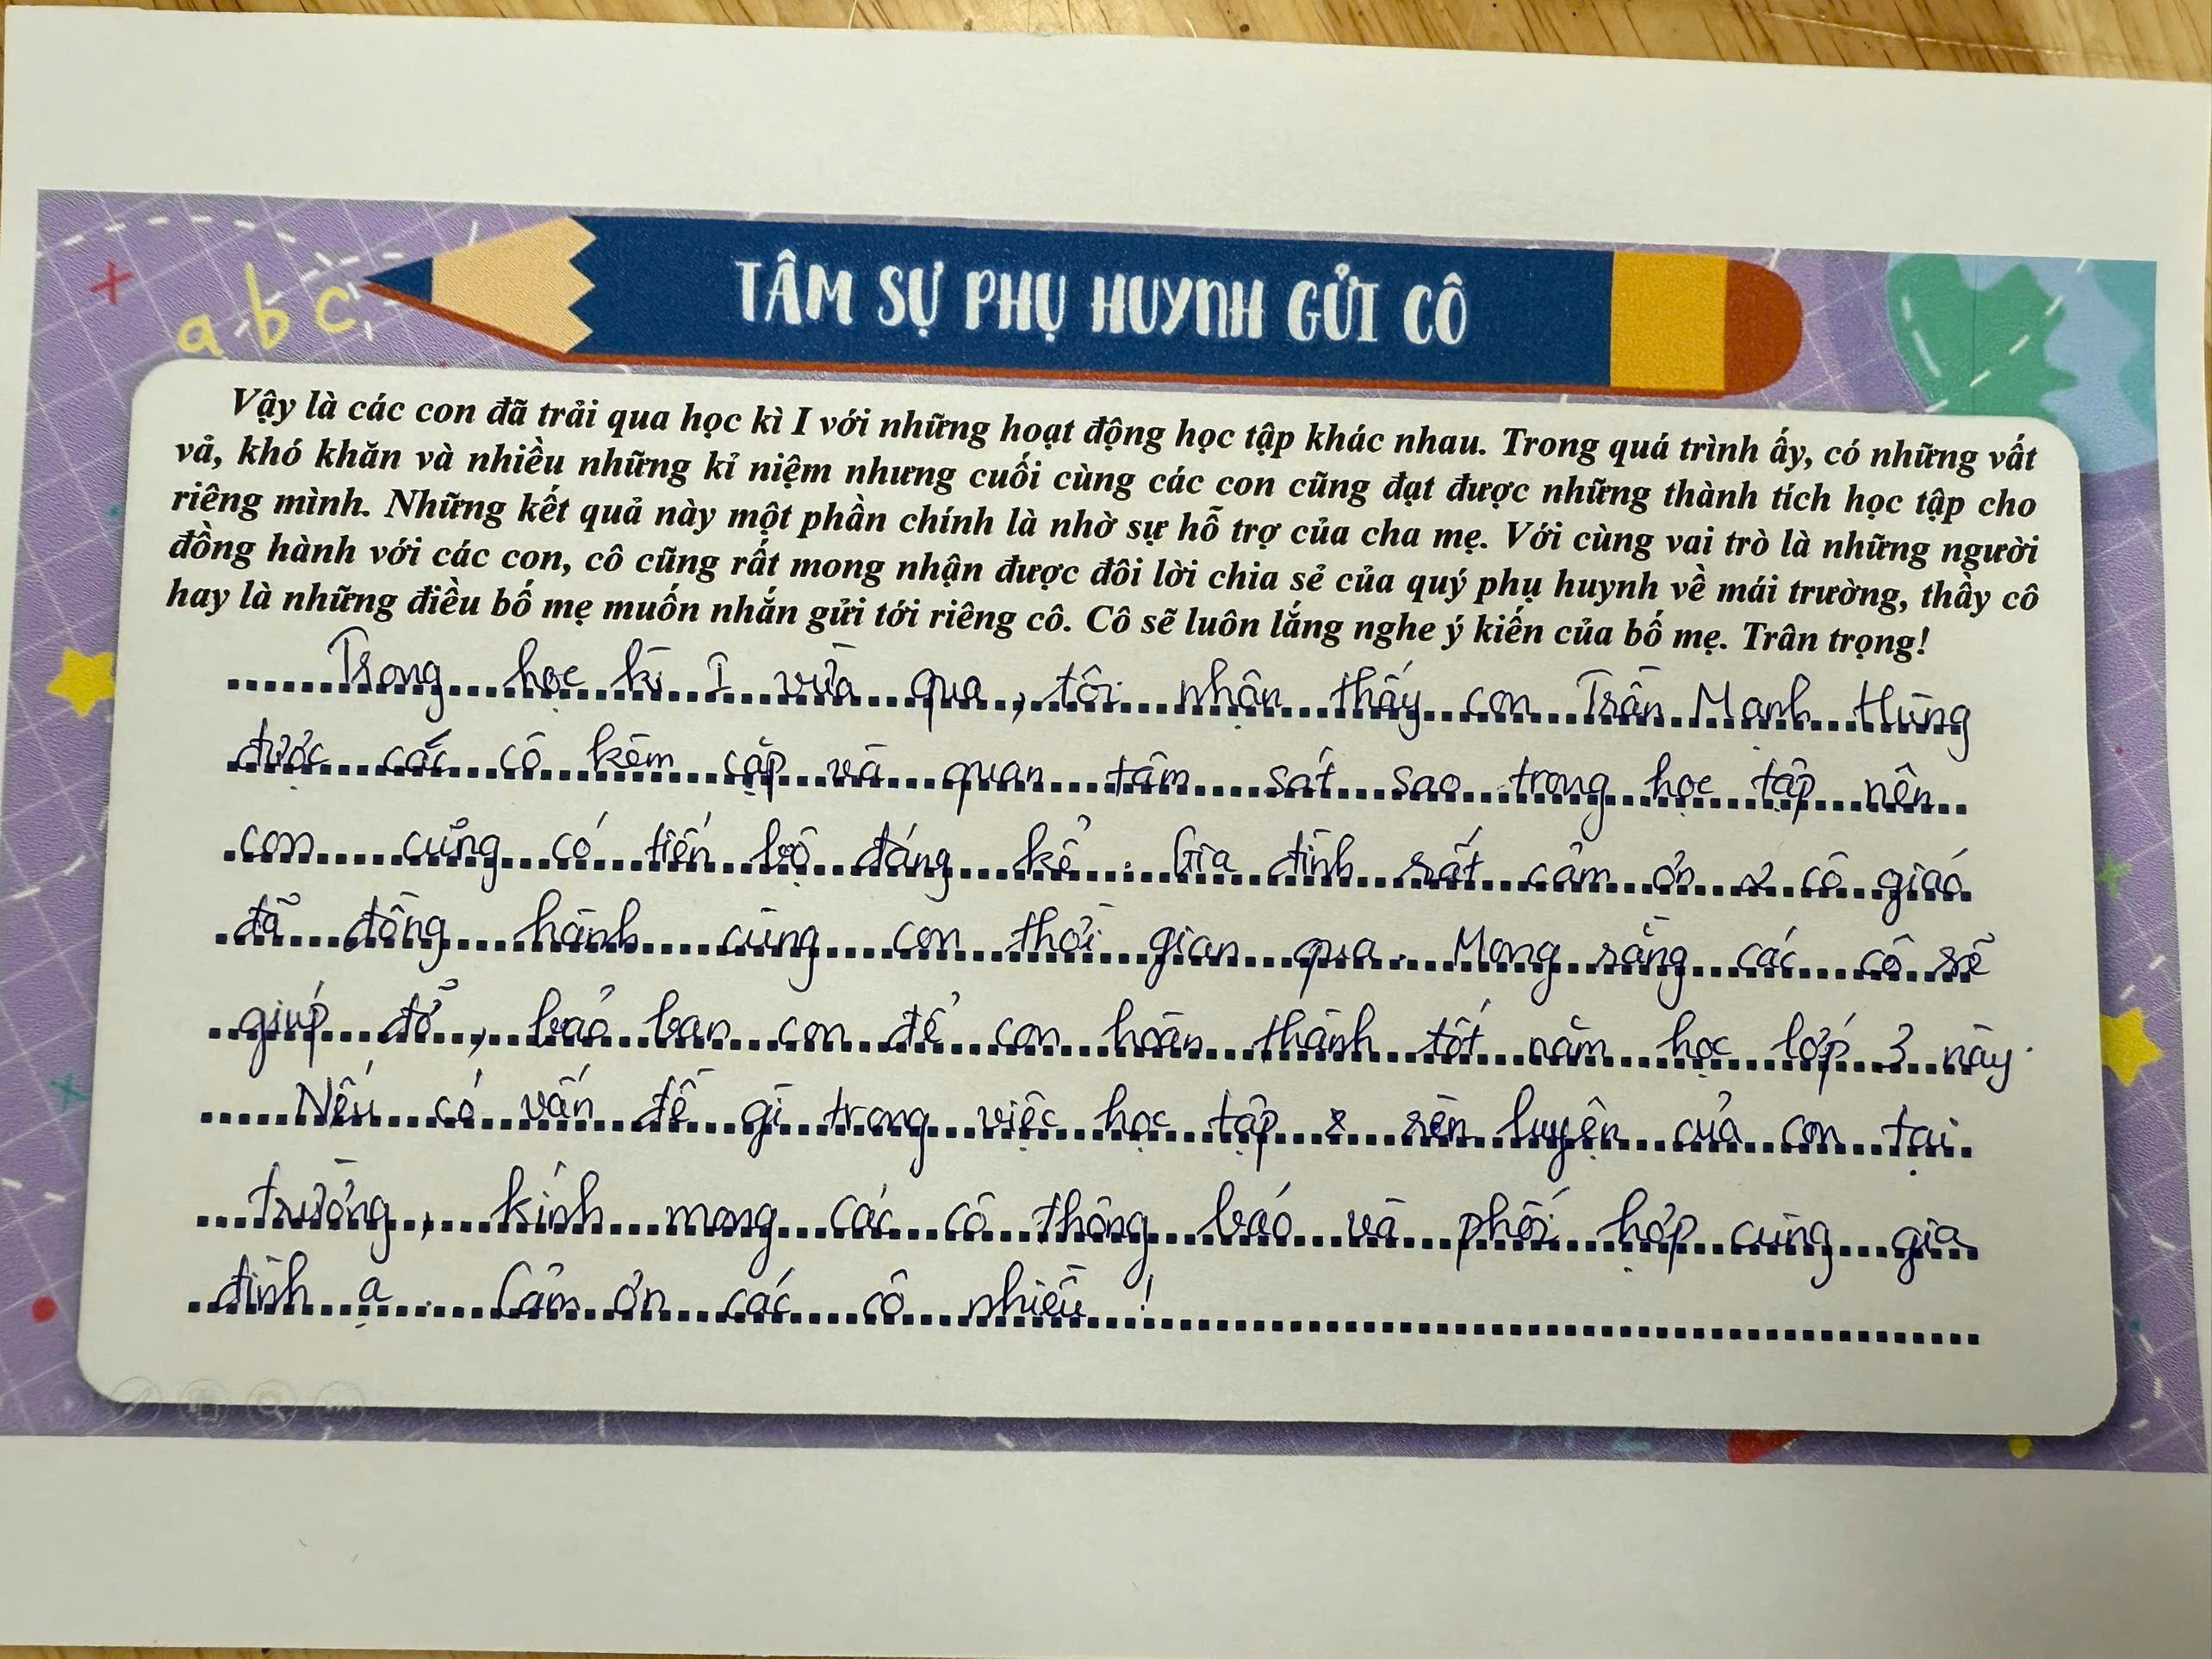 a b c
TÂM SỰ PHỤ HUYNH GỬI CÔ
Vậy là các con đã trải qua học kì I với những hoạt động học tập khác nhau. Trong quá trình ấy, có những vất
vả, khó khăn và nhiều những kỉ niệm nhưng cuối cùng các con cũng đạt được những thành tích học tập cho
riêng mình. Những kết quả này một phần chính là nhờ sự hỗ trợ của cha mẹ. Với cùng vai trò là những người
đồng hành với các con, cô cũng rất mong nhận được đôi lời chia sẻ của quý phụ huynh về mái trường, thầy cô
hay là những điều bố mẹ muốn nhắn gửi tới riêng cô. Cô sẽ luôn lắng nghe ý kiến của bố mẹ. Trân trọng!
Trong học kì I vừa qua, tôi nhận thấy con Trần Mạnh Hùng
được các cô kèm cặp và quan tâm sát sao trong học tập nên
con cũng có tiến bộ đáng kể. Gia đình rất cảm ơn 2 cô giáo
đã đồng hành cùng con thời gian qua. Mong rằng các cô sẽ
giúp đỡ, bảo ban con để con hoàn thành tốt năm học lớp 3 này.
Nếu có vấn đề gì trong việc học tập & rèn luyện của con tại
trường, kính mong các cô thông báo và phối hợp cùng gia
đình ạ. Cảm ơn các cô nhiều!